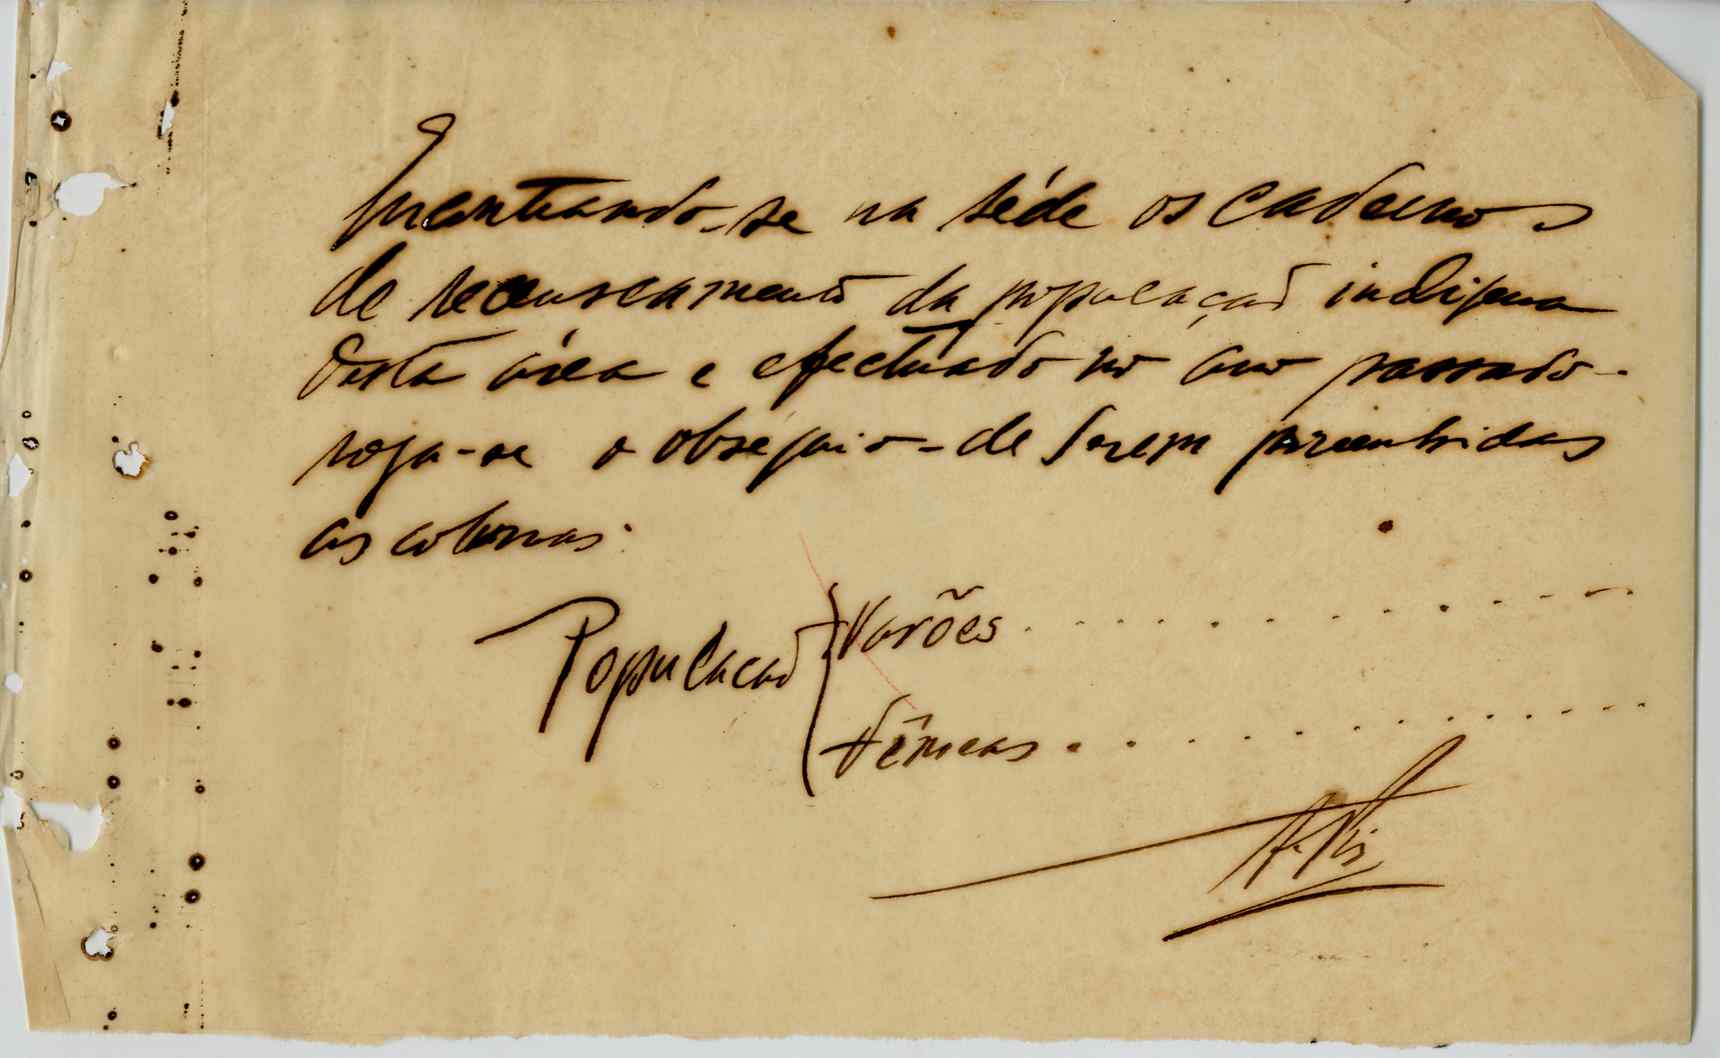 Encontrando-se na séde os cadernos
de recenseamento da população indigena
desta área e efectuado no ano passado -
roga-se o obsequio - de serem preenchidas
as colunas.
População { Varões . . . . . . . . . . . .
Fêmeas . . . . . . . . . . . .